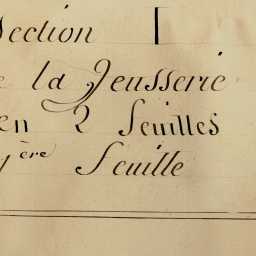 Section I
e la Jeusserie
en 2 Feuilles
1ère Feuille